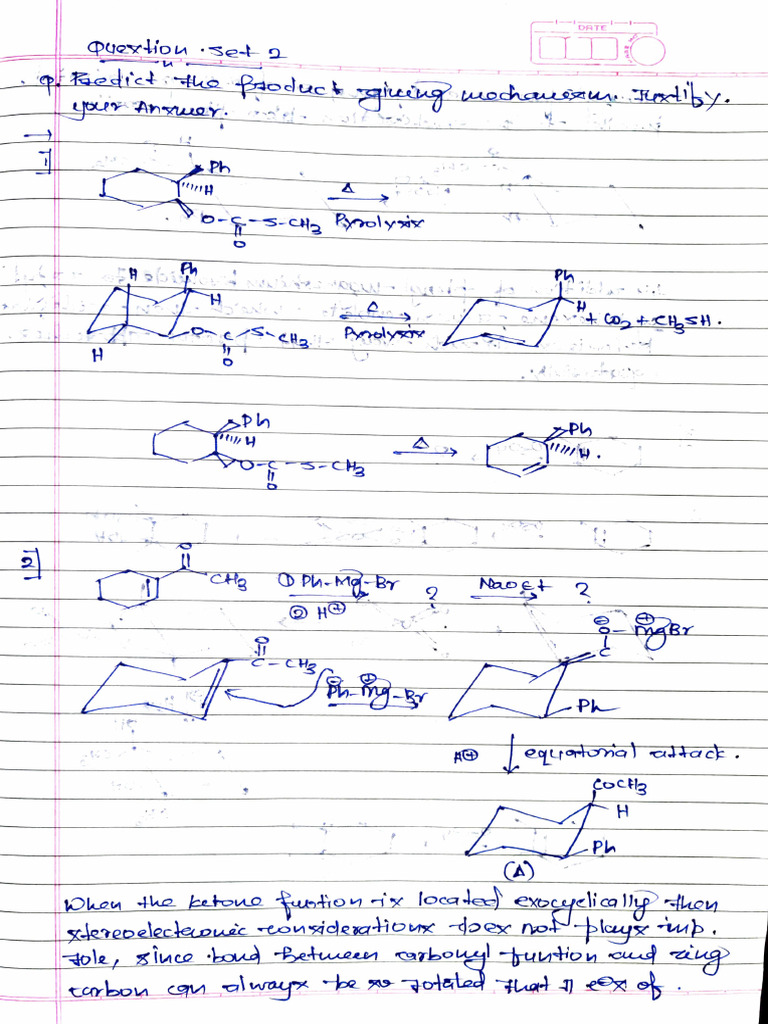 DATE
Question . Set 2
Q. Predict the Product giving mechanism. Justify.
your Answer.
→
1]
Ph
H
O-C-S-CH3
O
Δ
Pyrolysis
H
Ph
H
H
O-C-S-CH3
O
Δ
Pyrolysis
Ph
H
+ CO2 + CH3SH.
Ph
H
O-C-S-CH3
O
Δ
Ph
H.
2]
O
CH3
① Ph-Mg-Br
② H⊕
?
NaOEt
?
O
C-CH3
⊖ ⊕
Ph-Mg-Br
⊖ ⊕
O-MgBr
C
Ph
H⊕
equatorial attack.
COCH3
H
Ph
(A)
When the ketone funtion is located exocyclically then
stereoelectronic considerations does not plays imp.
role, since bond between carbonyl funtion and ring
carbon can always be so rotated that of.